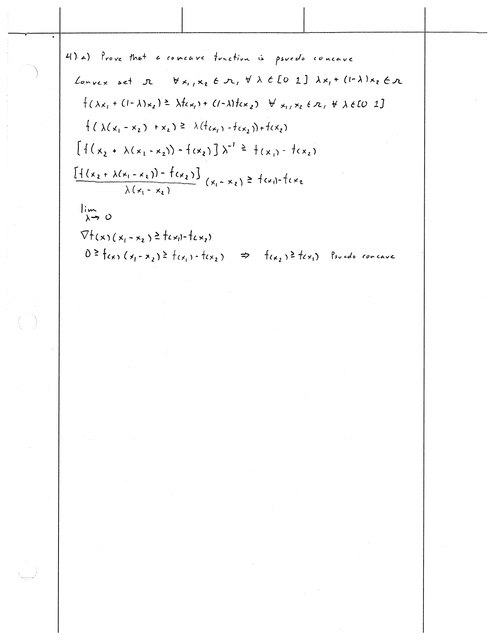 4) a) Prove that a concave function is psuedo concave
Convex set Ω ∀ x₁, x₂ ∈ Ω, ∀ λ ∈ [0 1] λx₁ + (1-λ)x₂ ∈ Ω
f(λx₁ + (1-λ)x₂) ≥ λf(x₁) + (1-λ)f(x₂) ∀ x₁, x₂ ∈ Ω, ∀ λ ∈ [0 1]
f(λ(x₁ - x₂) + x₂) ≥ λ(f(x₁) - f(x₂)) + f(x₂)
[f(x₂ + λ(x₁ - x₂)) - f(x₂)] λ⁻¹ ≥ f(x₁) - f(x₂)
[f(x₂ + λ(x₁ - x₂)) - f(x₂)] / λ(x₁ - x₂) (x₁ - x₂) ≥ f(x₁) - f(x₂
lim λ→0
∇f(x)(x₁ - x₂) ≥ f(x₁) - f(x₂)
0 ≥ f(x)(x₁ - x₂) ≥ f(x₁) - f(x₂) ⇒ f(x₂) ≥ f(x₁) Psuedo concave